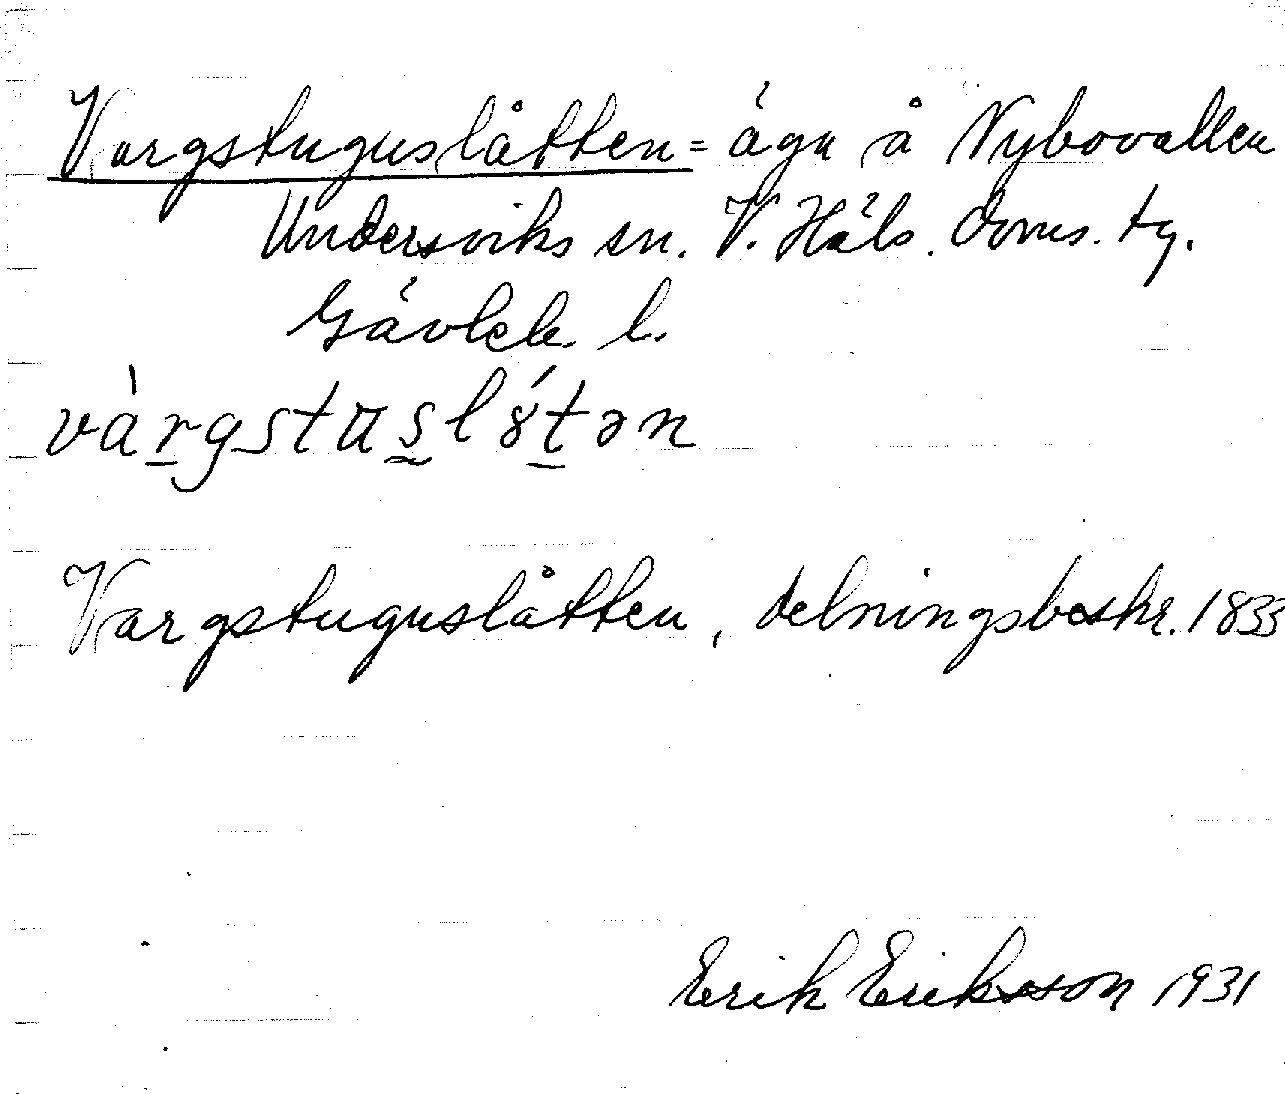 Vargstuguslåtten = äga å Nybovallen
Undersviks sn. V. Häls. doms. tg.
Gävleb. l.
và̱rgstᴜs̰lɤ́ṯən
Vargstuguslåtten, delningsbeskr. 1833
Erik Eriksson 1931